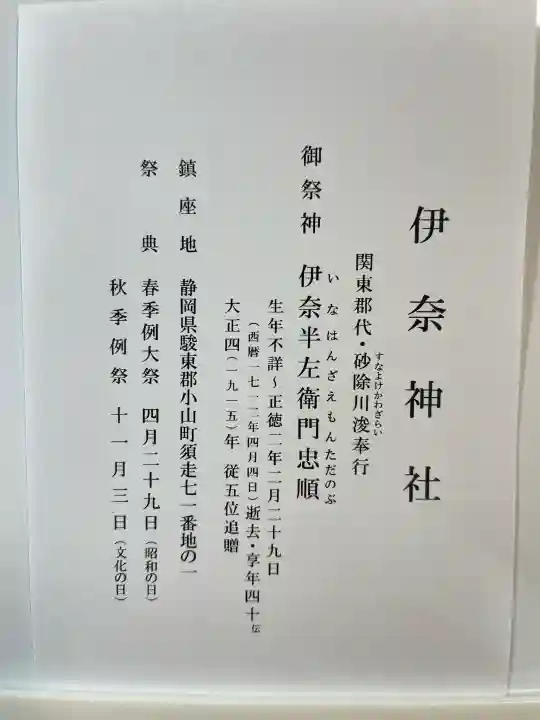 伊奈神社
関東郡代・砂除川浚奉行
すなよけかわざらい
御祭神 伊奈半左衛門忠順
いなはんざえもんただのぶ
生年不詳~正徳二年二月二十九日
(西暦一七一二年四月四日)逝去・享年四十伝
大正四(一九一五)年 従五位追贈
鎮座地 静岡県駿東郡小山町須走七一番地の一
祭典 春季例大祭 四月二十九日(昭和の日)
秋季例祭 十一月三日(文化の日)